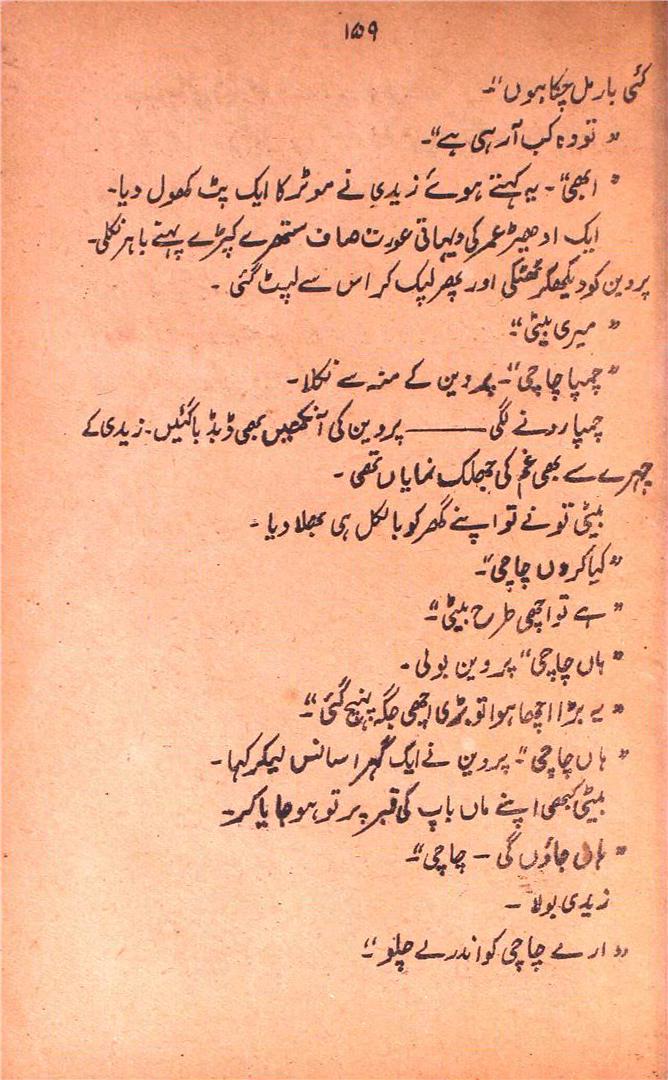 ۱۵۹
کئی بار مل چکا ہوں"۔
" تو وہ کب آرہی ہے"۔
" ابھی"۔ یہ کہتے ہوئے زیدی نے موٹر کا ایک پٹ کھول دیا۔
ایک ادھیڑ عمر کی دیہاتی عورت صاف ستھرے کپڑے پہنے باہر نکلی۔
پروین کو دیکھکر ٹھٹکی اور پھر لپک کر اس سے لپٹ گئی ۔
" میری بیٹی"۔
" چمپا چاچی"۔ پروین کے منہ سے نکلا۔
چمپا رونے لگی ——— پروین کی آنکھیں بھی ڈبڈبا گئیں۔ زیدی کے
چہرے سے بھی غم کی جھلک نمایاں تھی ۔
بیٹی تو نے تو اپنے گھر کو بالکل ہی بھلا دیا ۔
" کیا کروں چاچی"۔
" ہے تو اچھی طرح بیٹی"۔
" ہاں چاچی" پروین بولی ۔
" یہ بڑا اچھا ہوا تو بڑی اچھی جگہ پہنچ گئی"۔
" ہاں چاچی"۔ پروین نے ایک گہرا سانس لیکر کہا ۔
بیٹی کبھی اپنے ماں باپ کی قبر پر تو ہو جایا کر۔
" ہاں جاؤں گی – چاچی"۔
زیدی بولا ۔
" ارے چاچی کو اندر لے چلو "۔